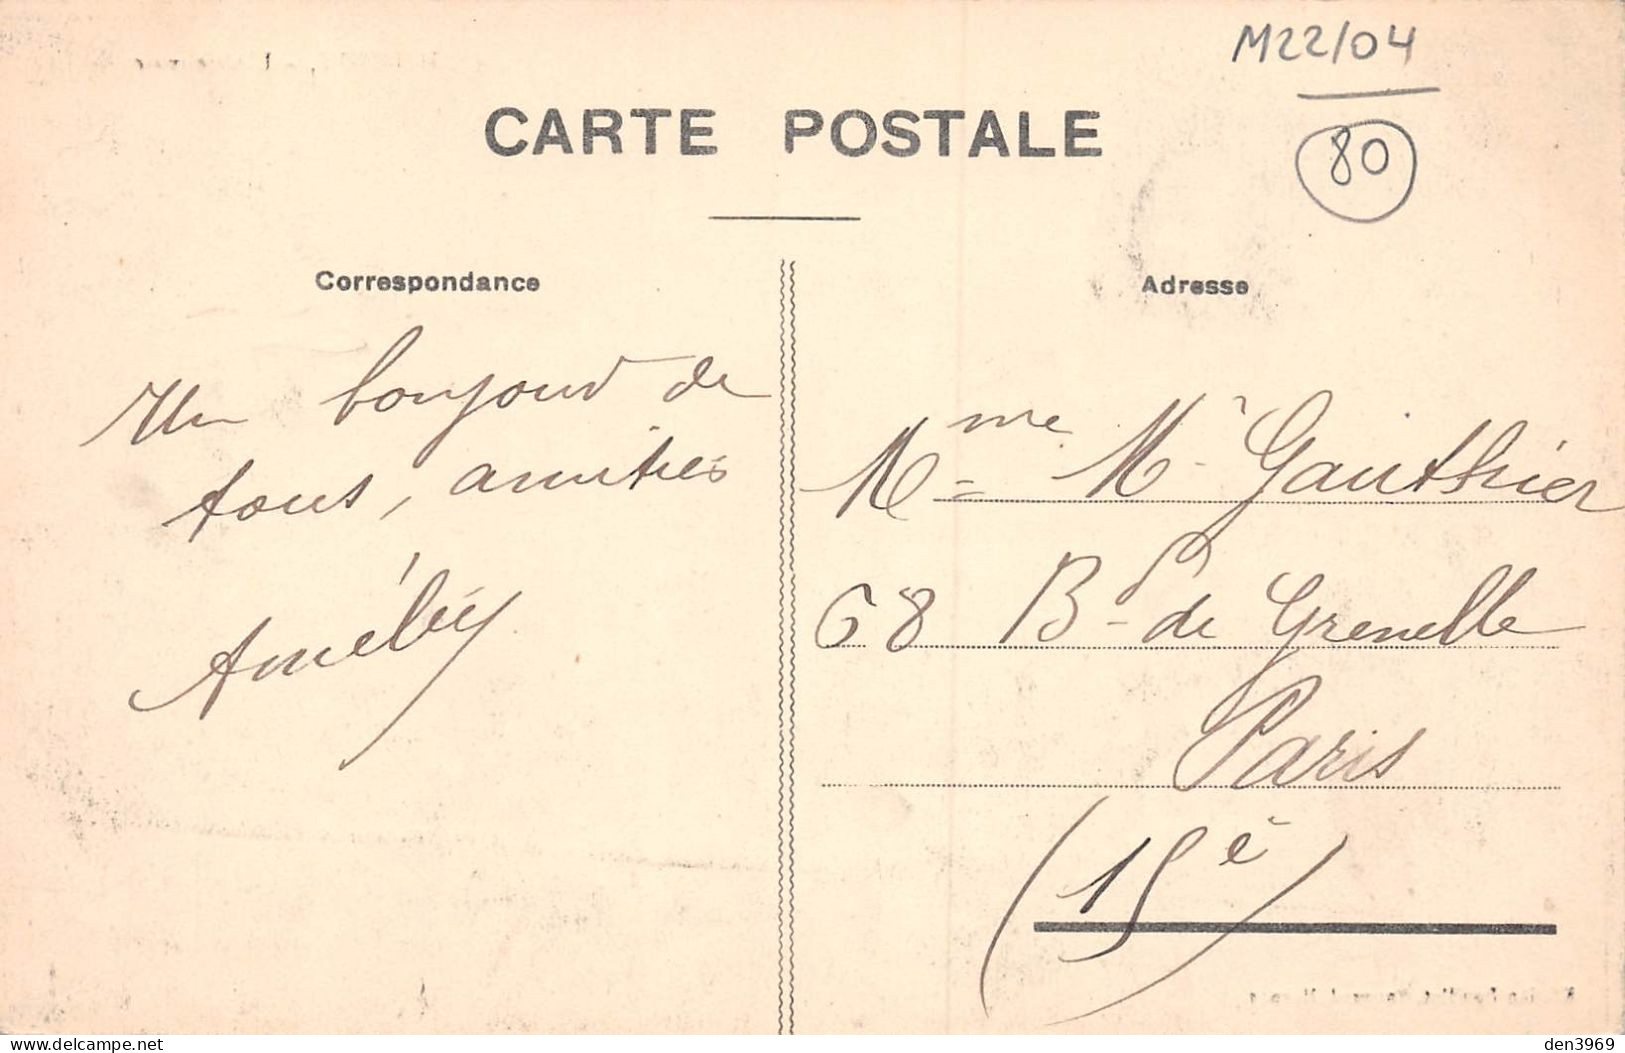 M22/04
80
CARTE POSTALE
Correspondance
Un bonjour de
tous, amitiés
Amély
Adresse
Mme M. Gauthier
68 Bd de Grenelle
Paris
(15é)
Delcampe.net
den3969